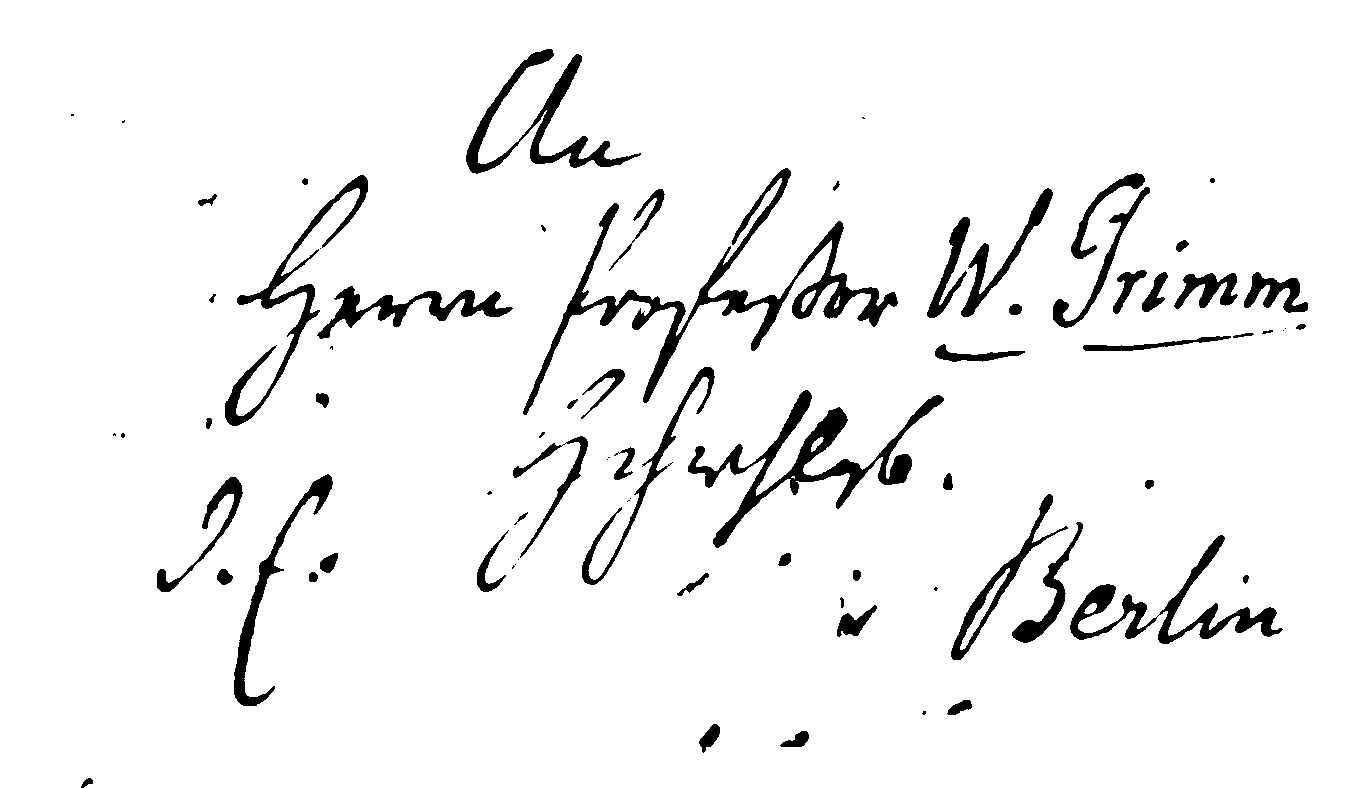 An
Herrn Profeßor W. Grimm
Hchwhlgb.
in Berlin